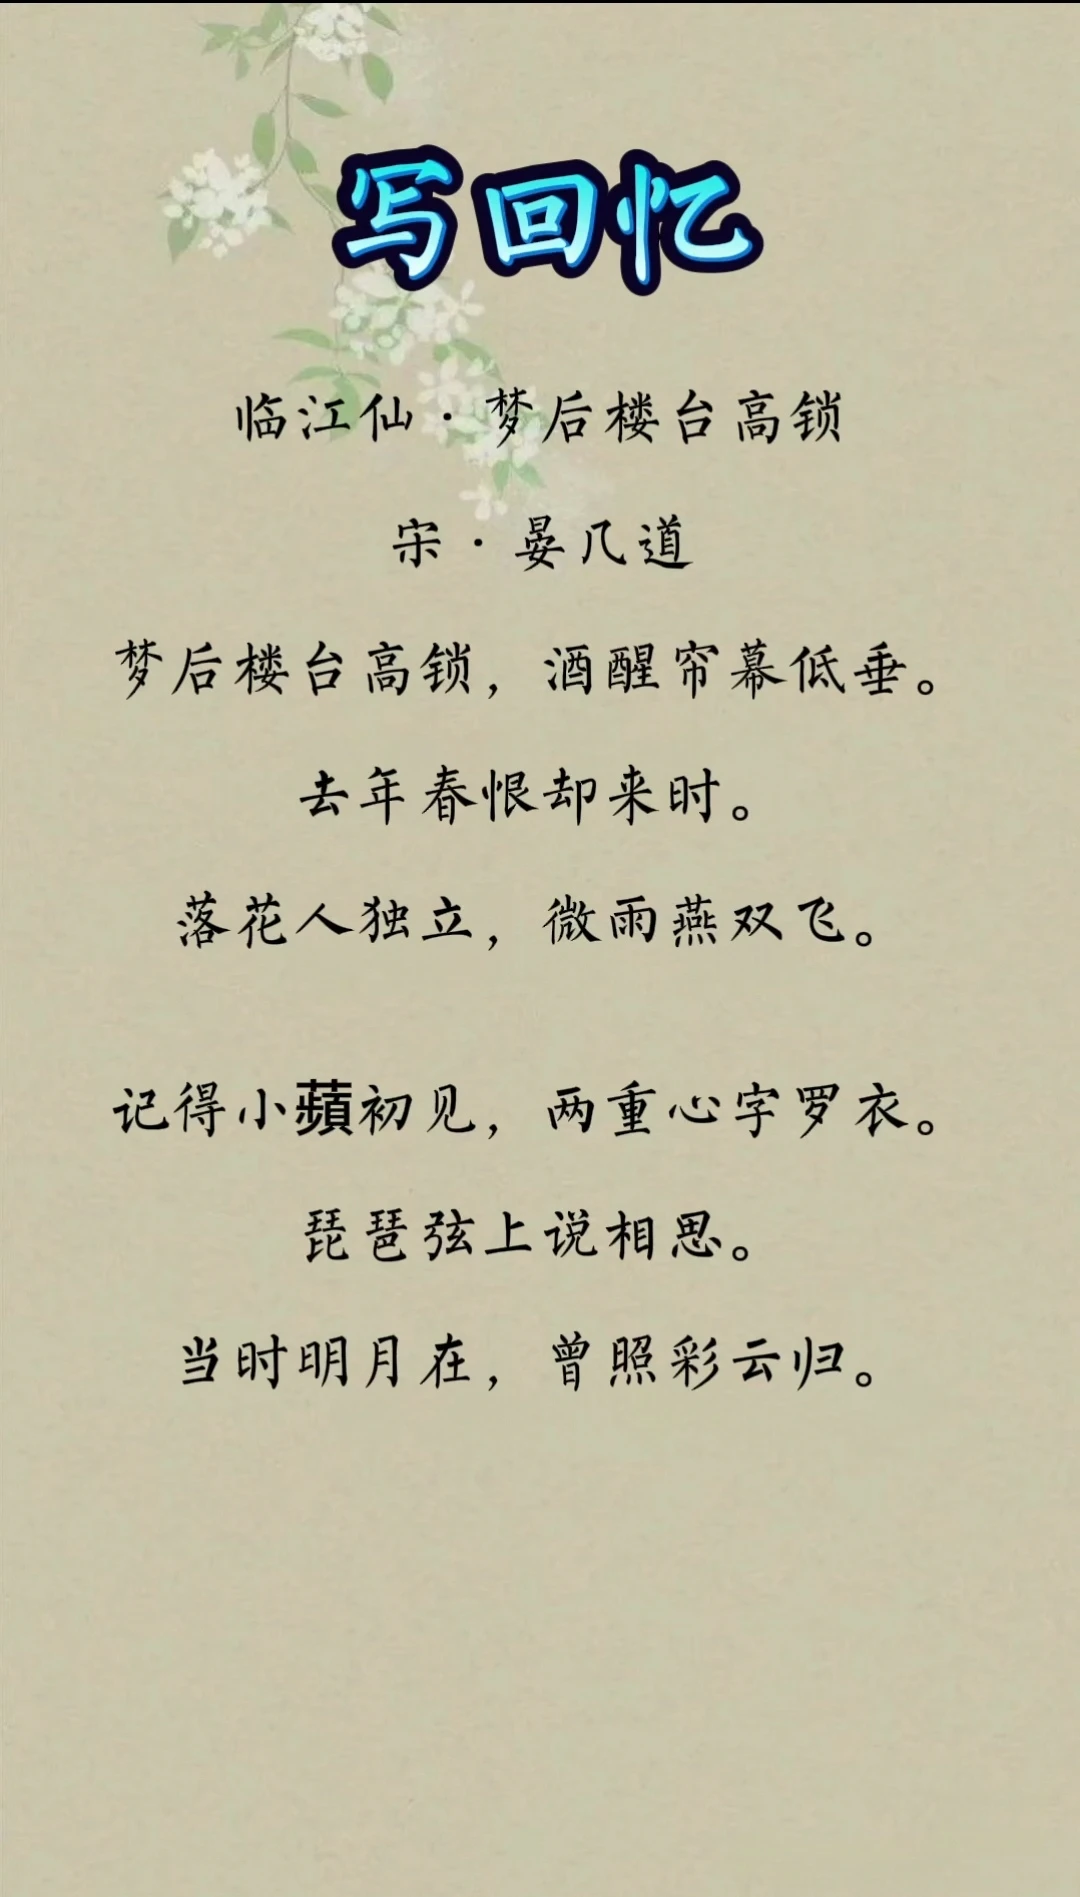 写回忆
临江仙·梦后楼台高锁
宋·晏几道
梦后楼台高锁，酒醒帘幕低垂。
去年春恨却来时。
落花人独立，微雨燕双飞。
记得小蘋初见，两重心字罗衣。
琵琶弦上说相思。
当时明月在，曾照彩云归。